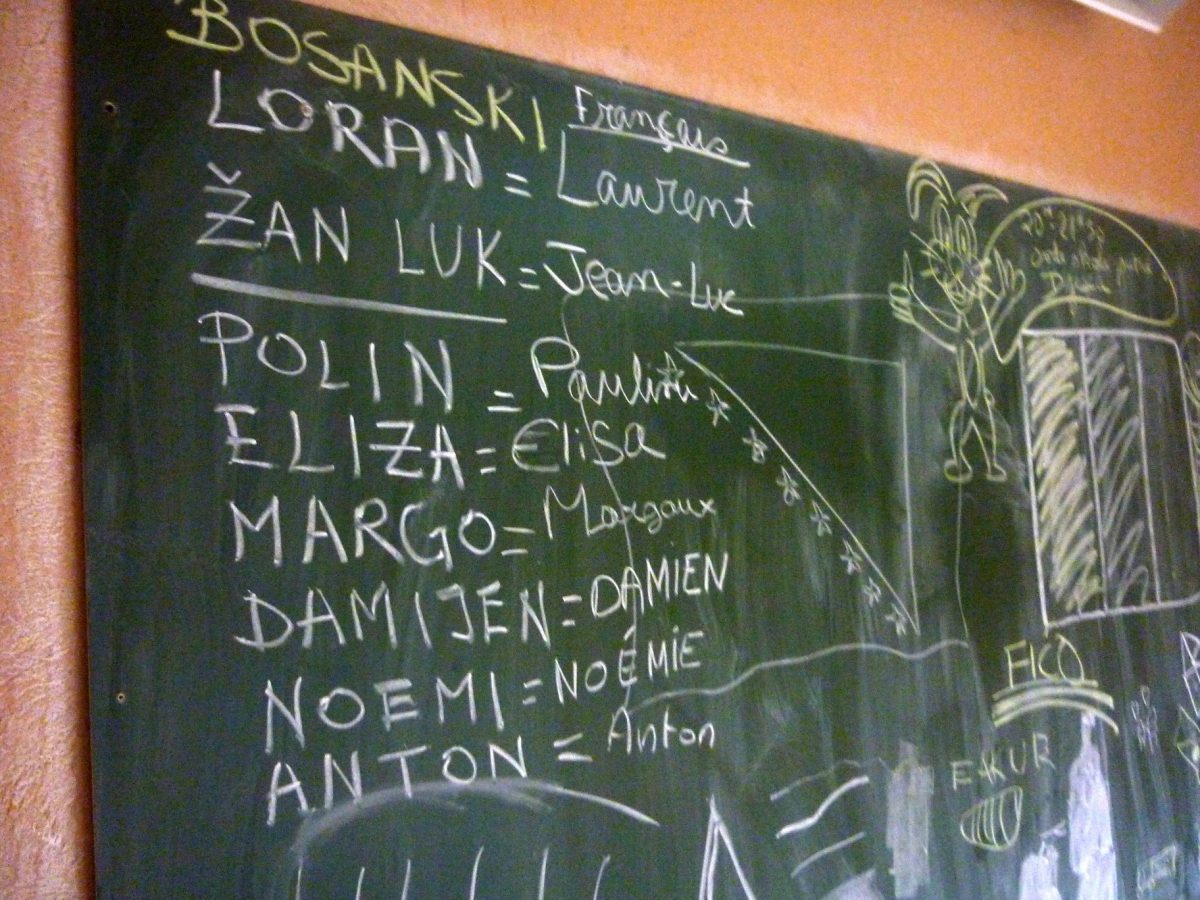 BOSANSKI Français
LORAN = Laurent
ŽAN LUK = Jean-Luc
POLIN = Pauline
ELIZA = Elisa
MARGO = Margaux
DAMIJEN = DAMIEN
NOEMI = NOÉMIE
ANTON = Anton
FICO